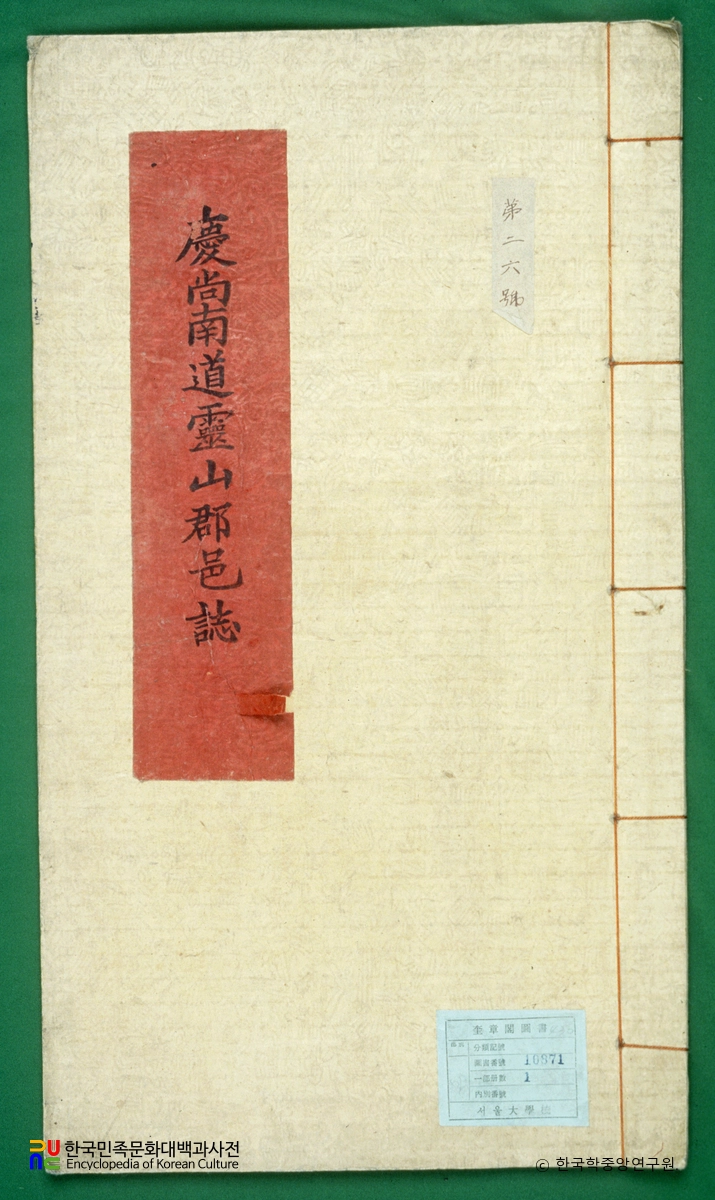 慶尙南道靈山郡邑誌
第二六號
奎章閣圖書
分類記號
圖書番號 10871
一部冊數 1
內別番號
서울大學校
한국민족문화대백과사전
Encyclopedia of Korean Culture
© 한국학중앙연구원